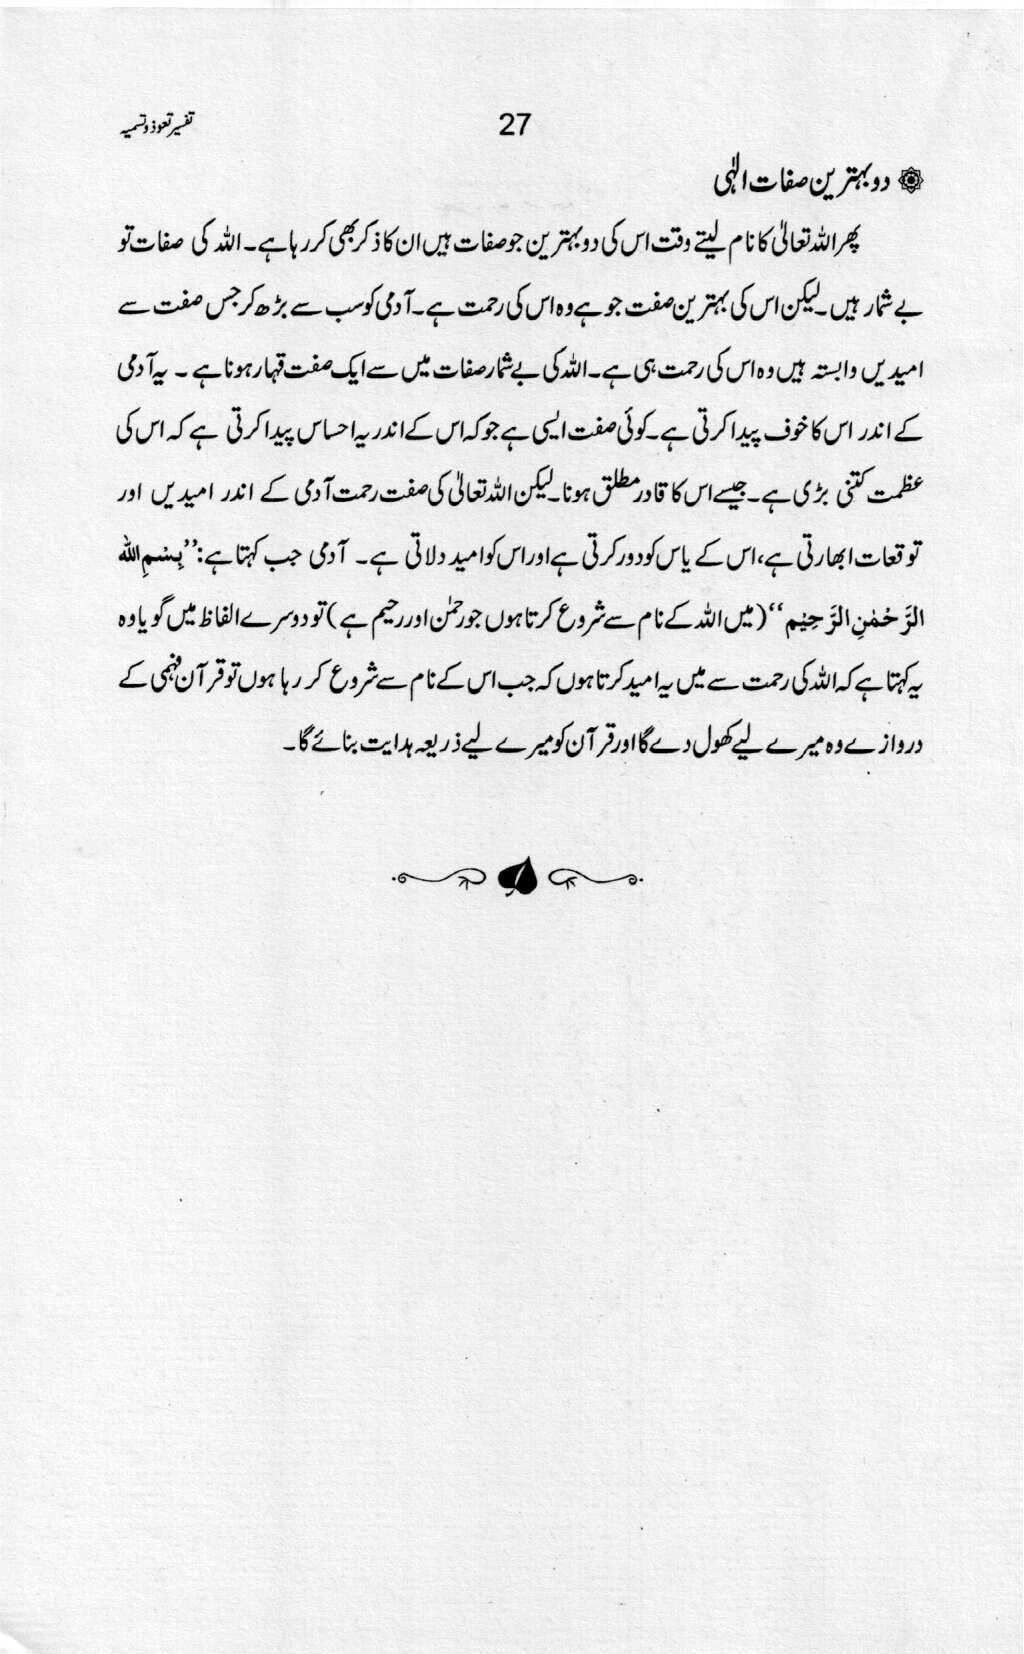 تفسیر تعوذ و تسمیہ 27
دو بہترین صفات الٰہی
پھر اللہ تعالیٰ کا نام لیتے وقت اس کی دو بہترین جو صفات ہیں ان کا ذکر بھی کر رہا ہے۔ اللہ کی صفات تو
بے شمار ہیں۔ لیکن اس کی بہترین صفت جو ہے وہ اس کی رحمت ہے۔ آدمی کو سب سے بڑھ کر جس صفت سے
امیدیں وابستہ ہیں وہ اس کی رحمت ہی ہے۔ اللہ کی بے شمار صفات میں سے ایک صفت قہار ہونا ہے ۔ یہ آدمی
کے اندر اس کا خوف پیدا کرتی ہے۔ کوئی صفت ایسی ہے جو کہ اس کے اندر یہ احساس پیدا کرتی ہے کہ اس کی
عظمت کتنی بڑی ہے۔ جیسے اس کا قادر مطلق ہونا۔ لیکن اللہ تعالیٰ کی صفت رحمت آدمی کے اندر امیدیں اور
توقعات ابھارتی ہے، اس کے یاس کو دور کرتی ہے اور اس کو امید دلاتی ہے۔ آدمی جب کہتا ہے: ’’بِسْمِ اللّٰه
الرَّحْمٰنِ الرَّحِيْم‘‘ (میں اللہ کے نام سے شروع کرتا ہوں جو رحمٰن اور رحیم ہے) تو دوسرے الفاظ میں گویا وہ
یہ کہتا ہے کہ اللہ کی رحمت سے میں یہ امید کرتا ہوں کہ جب اس کے نام سے شروع کر رہا ہوں تو قرآن فہمی کے
دروازے وہ میرے لیے کھول دے گا اور قرآن کو میرے لیے ذریعہ ہدایت بنائے گا۔